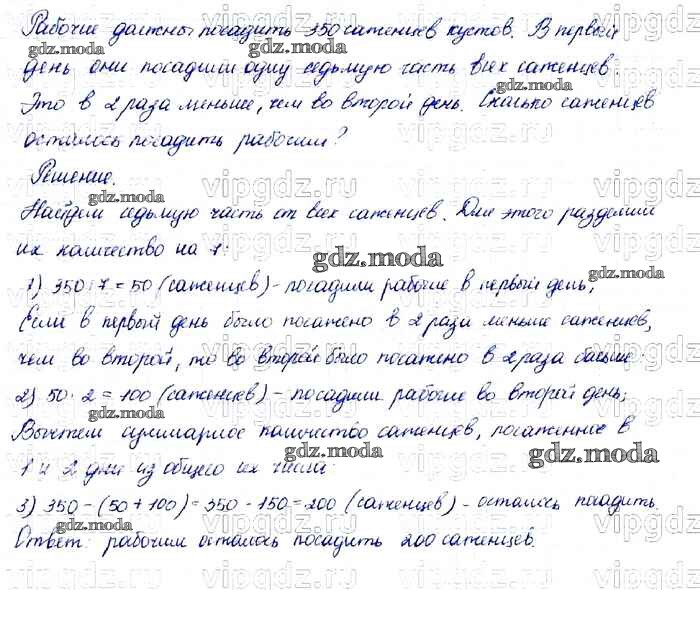 Рабочие должны посадить 350 саженцев кустов. В первый
день они посадили одну седьмую часть всех саженцев.
Это в 2 раза меньше, чем во второй день. Сколько саженцев
осталось посадить рабочим?
Решение.
Найдем седьмую часть от всех саженцев. Для этого разделим
их количество на 7:
1) 350 : 7 = 50 (саженцев) - посадили рабочие в первый день;
Если в первый день было посажено в 2 раза меньше саженцев,
чем во второй, то во второй было посажено в 2 раза больше:
2) 50 · 2 = 100 (саженцев) - посадили рабочие во второй день;
Вычтем суммарное количество саженцев, посаженное в
1 и 2 дни из общего их числа:
3) 350 - (50 + 100) = 350 - 150 = 200 (саженцев) - осталось посадить.
Ответ: рабочим осталось посадить 200 саженцев.